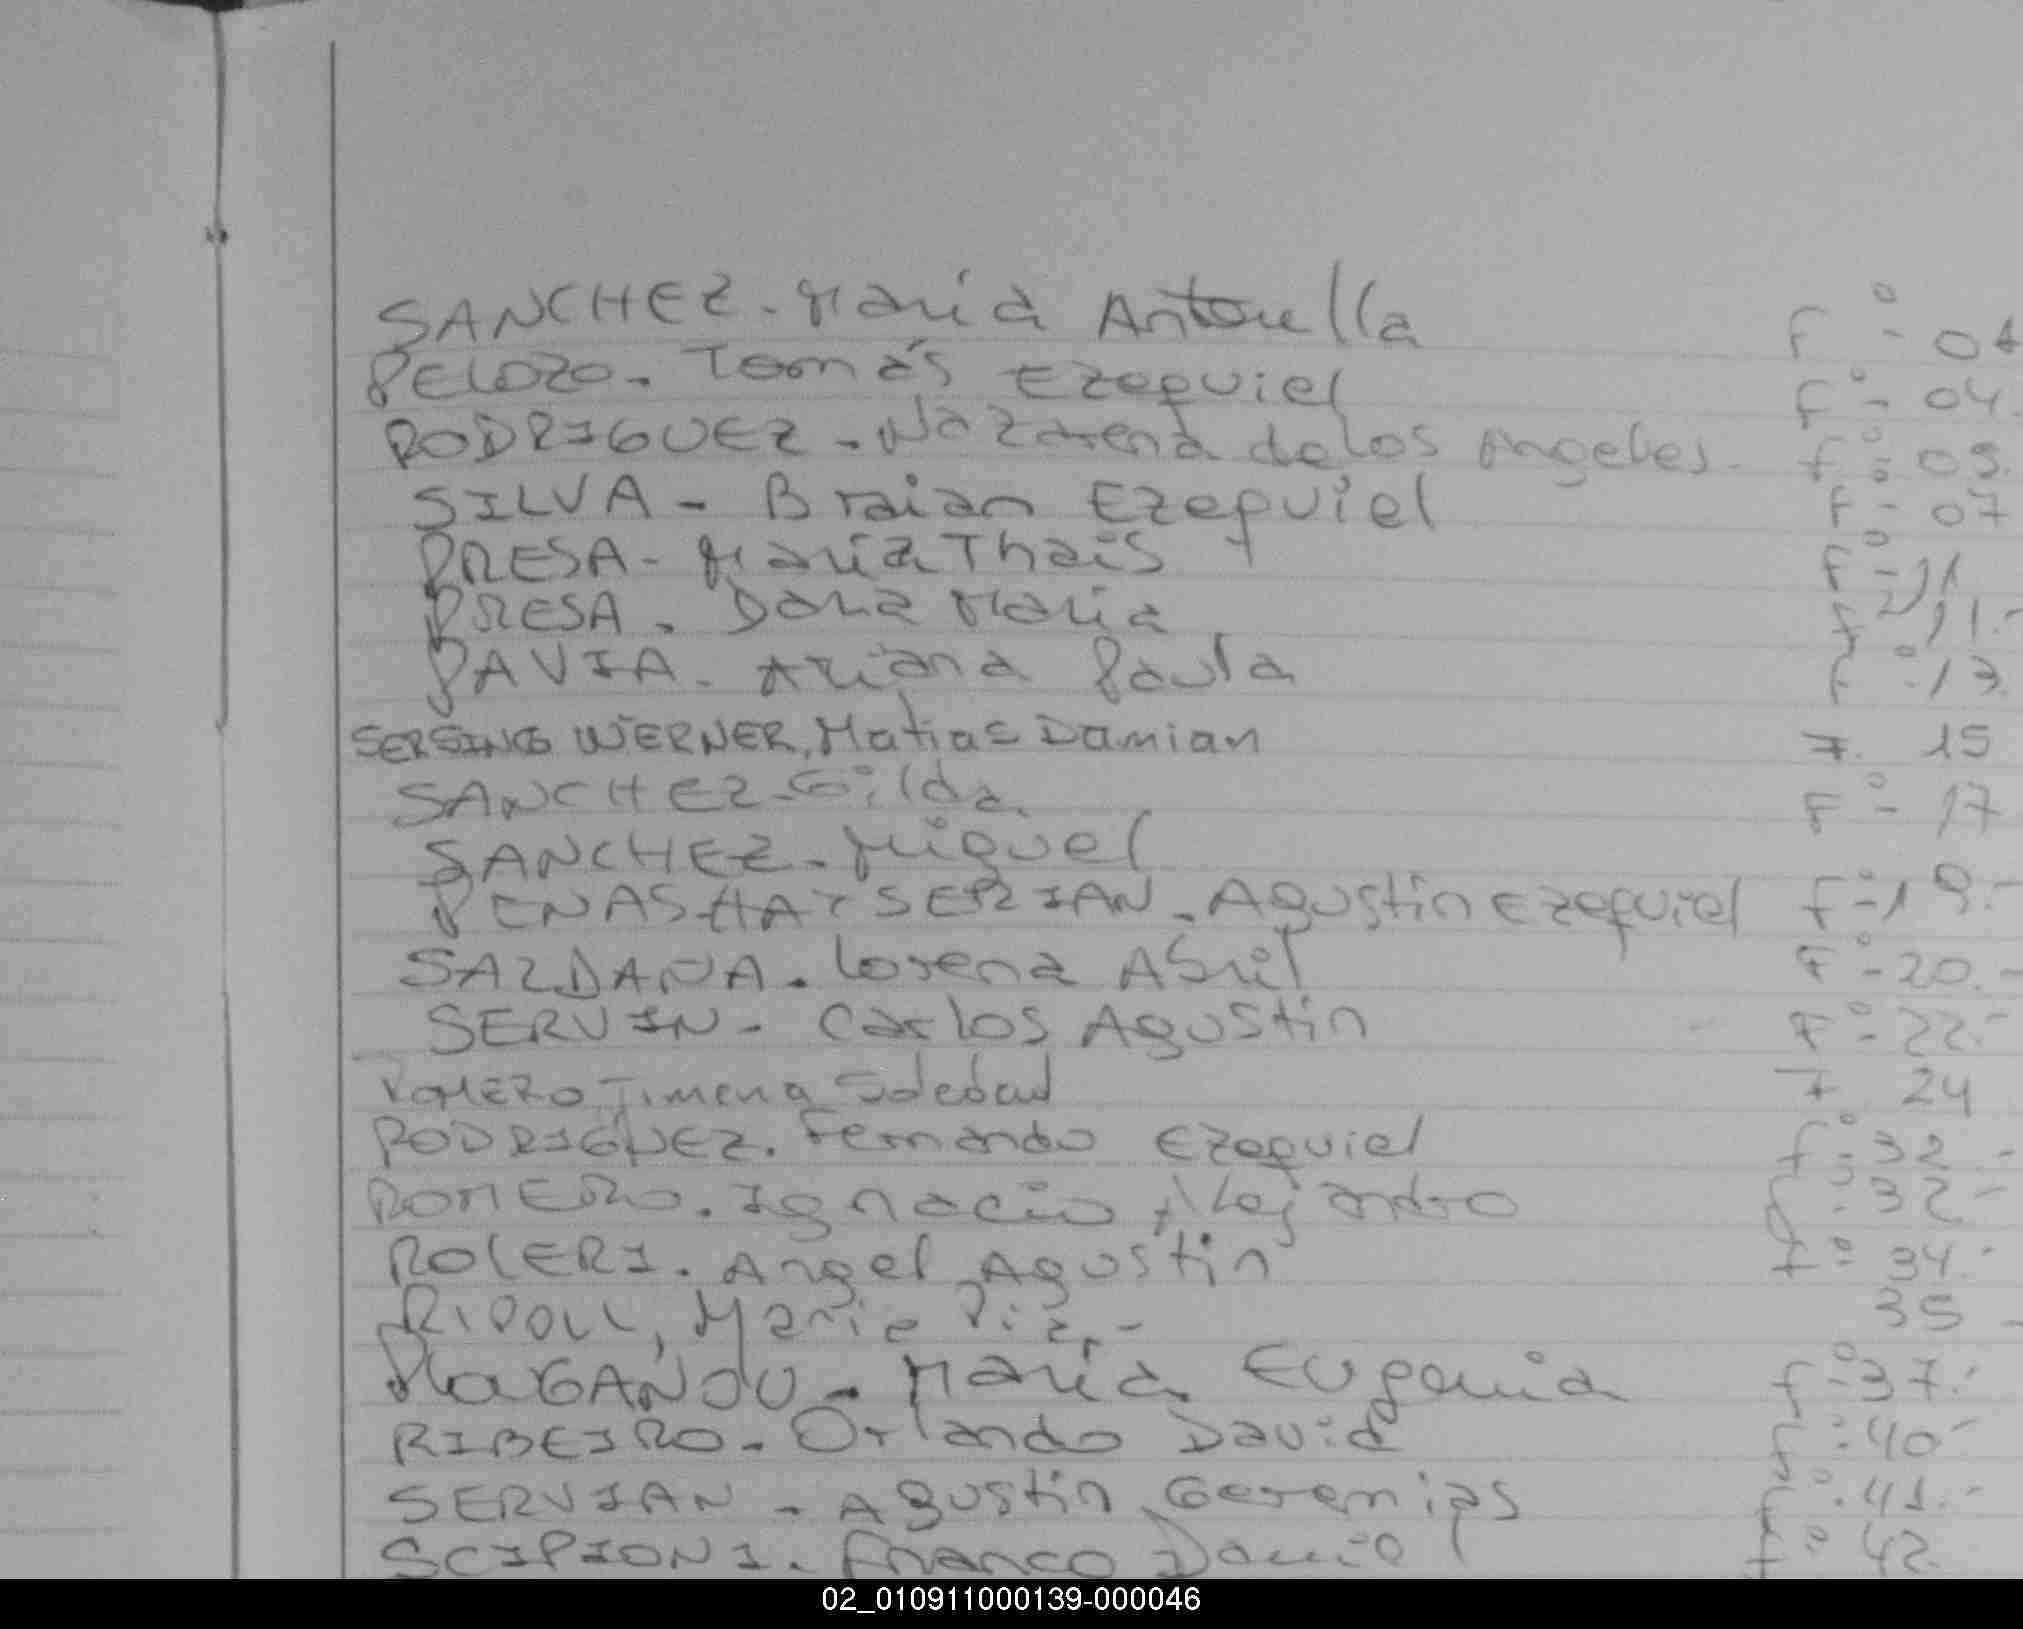 SANCHEZ - María Antonella F° - 04
PELOZO - Tomás Ezequiel F° - 04.
RODRIGUEZ - Nazarena de los Angeles - f° - 05.
SILVA - Braian Ezequiel F° - 07
PRESA - María Thais F° - 11
PRESA - Dana María f° 11.-
PAVIA - Ariana Paula f° - 13.
SERSING WERNER, Matias Damian F. 15
SANCHEZ - Gilda. F° - 17
SANCHEZ - Miguel
PENAS HATSERIAN - Agustin Ezequiel f° - 19.-
SALDAÑA - Lorena Abril F° - 20.-
SERVIN - Carlos Agustin F° - 22.-
ROMERO, Jimena Soledad F 24
RODRIGUEZ. Fernando Ezequiel f° - 32.-
ROMERO. Ignacio Alejandro f° - 32.-
ROLERI. Angel Agustin f° - 34.-
RIPOLL, Maria Pia.- 35 -
María Eugenia f° - 37.-
RIBEIRO - Orlando David f° - 40.-
SERVIAN - Agustin Geremias f° - 41.-
SCIPIONI. Franco Daniel f° 42.
02_010911000139-000046